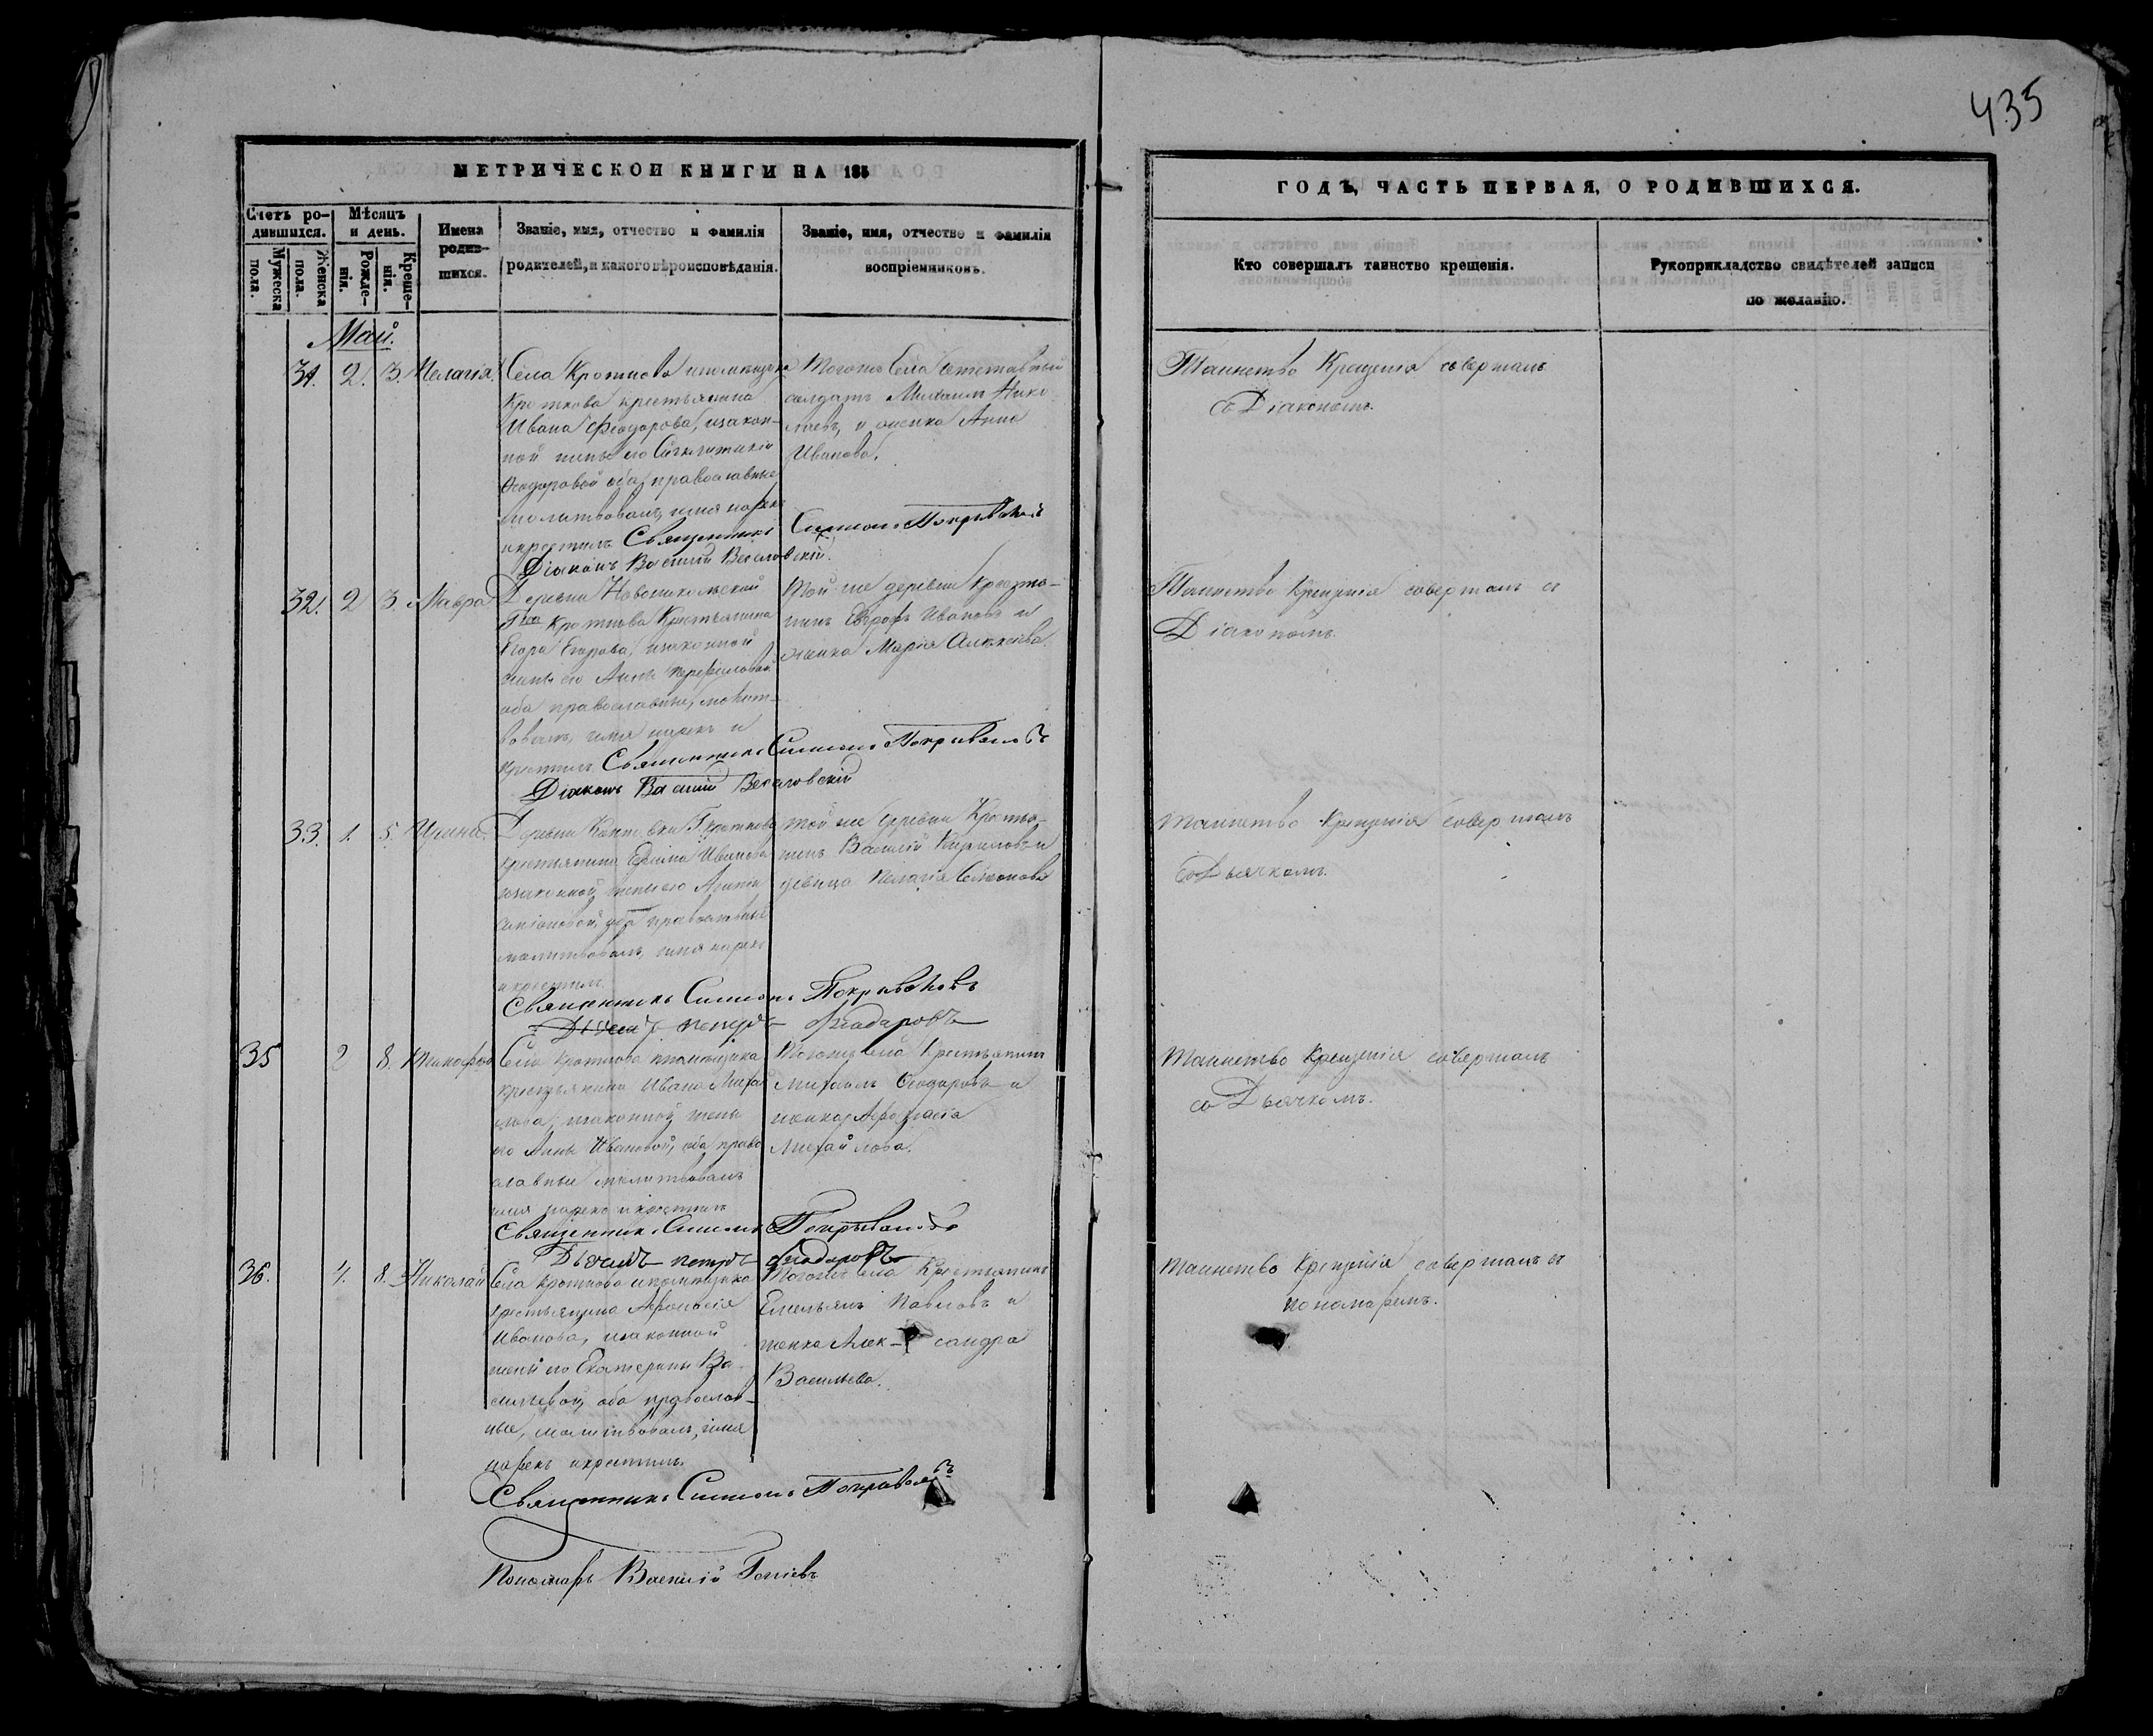 435
МЕТРИЧЕСКОЙ КНИГИ НА 185
ГОДЪ, ЧАСТЬ ПЕРВАЯ, О РОДИВШИХСЯ.
Счетъ ро-
дившихся.
Мужеска
пола.
Женска
пола.
Мѣсяцъ
и день.
Рожде-
нія.
Креще-
нія.
Имена
родив-
шихся.
Званіе, имя, отчество и фамилія
родителей, и какого вѣроисповѣданія.
Званіе, имя, отчество и фамилія
воспріемниковъ.
Кто совершалъ таинство крещенія.
Рукоприкладство свидѣтелей записи
по желанію.
Май.
31. 2. 3. Пелагія.
Села Кроткова помѣщика
Кроткова крестьянина
Ивана Феодорова, изакон-
ной жены его
Феодоровой оба православные
молитвовалъ, имя нарекъ
и крестилъ Священникъ Симеонъ Покрываловъ
Діаконъ Василій Веселовскій.
Тогоже села отставный
солдатъ Михаилъ Нико-
лаевъ, и женка Анна
Иванова.
Таинство Крещенія совершалъ
съ Діакономъ.
32. 2 3. Мавра
Деревни Новоникольской
Гна Кроткова Крестьянина
Егора Егорова, изаконной
жены его Анны
оба православные, молит-
вовалъ, имя нарекъ и
крестилъ Священникъ Симеонъ Покрываловъ
Діаконъ Василій Веселовскій
Той же деревни Крестья-
нинъ Ивановъ и
женка Марія Алексѣева
Таинство Крещенія совершалъ съ
Діакономъ.
33. 1. 5. Ирина.
Деревни Г. Кроткова
крестьянина Ефима Иванова
изаконной жены его
оба православные
молитвовалъ, имя нарекъ
и крестилъ.
Священникъ Симеонъ Покрываловъ
Дьячекъ Петръ Феодоровъ
Той же деревни Крестья-
нинъ Василій Кириловъ и
девица Пелагія
Таинство Крещенія совершалъ
со Дьячкомъ.
35 2 8.
Села Кроткова помѣщика
крестьянина Ивана Михай-
лова, изаконной жены
его Анны Ивановой, оба право
славные молитвовалъ
имя нарекъ и крестилъ
Священникъ Симеонъ Покрываловъ
Дьячекъ Петръ Феодоровъ
Тогоже села Крестьянинъ
Михаилъ Феодоровъ и
женка
Михайлова.
Таинство Крещенія совершалъ
со Дьячкомъ.
36. 4. 8. Николай
Села Кроткова помѣщика
крестьянина Афонасія
Иванова, изаконной
жены его Екатерины Ва-
сильевой, оба православ-
ные, молитвовалъ, имя
нарекъ и крестилъ.
Священникъ Симеонъ Покрываловъ
Пономарь Василій
Тогоже села Крестьянинъ
Емельянъ Павловъ и
женка Алек-сандра
Васильева.
Таинство Крещенія совершалъ съ
пономаремъ.